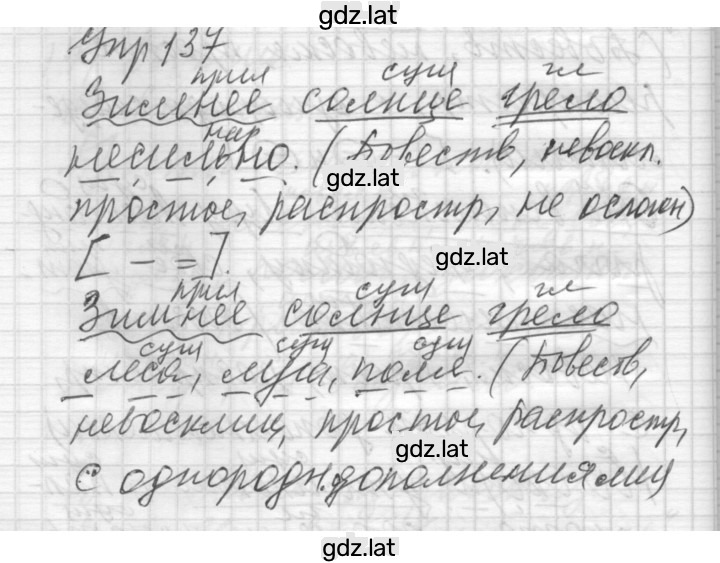 gdz.lat
Упр 137
прил сущ гл
Зимнее солнце грело
нар
несильно. (Повеств, невоскл.
gdz.lat
простое, распростр, не ослож)
[ – = ].
gdz.lat
прил сущ гл
Зимнее солнце грело
сущ сущ сущ
леса, луга, поля. (Повеств,
невосклиц, простое, распростр,
gdz.lat
с однородн. дополнениями)
gdz.lat